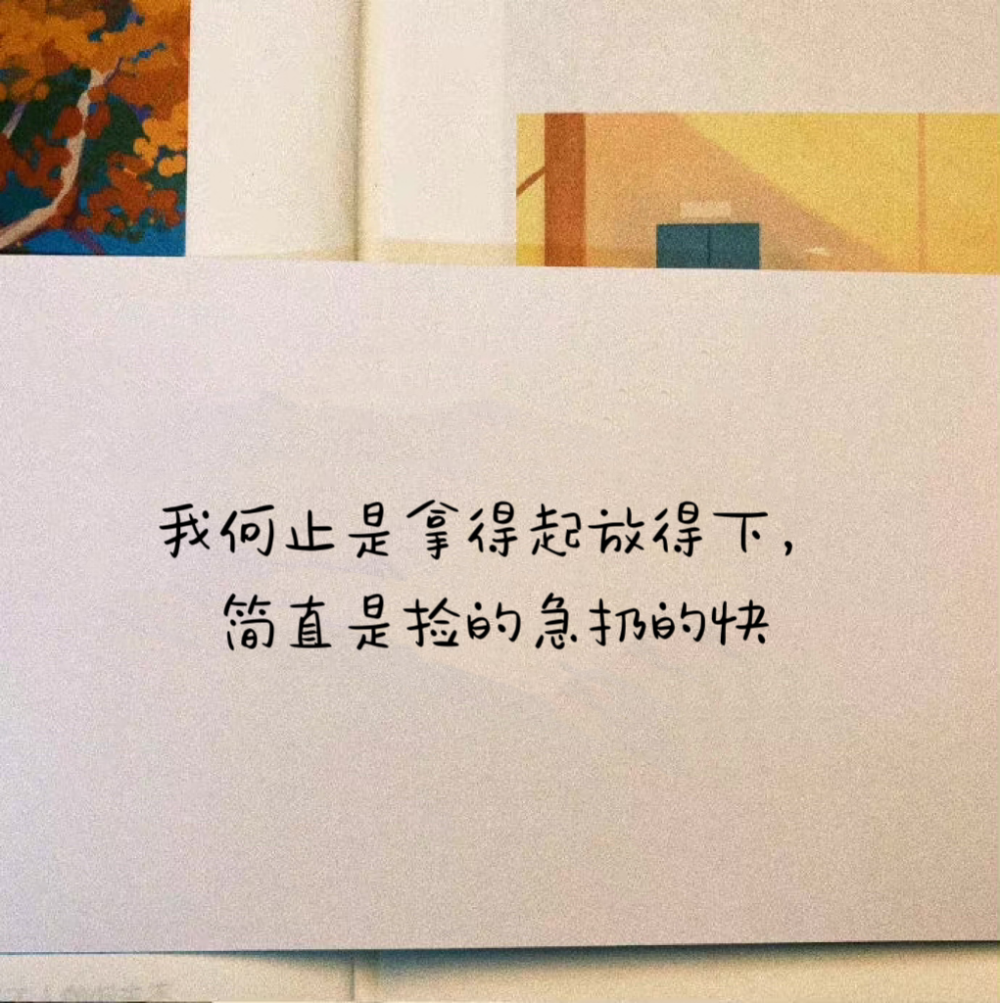 我何止是拿得起放得下，
简直是捡的急扔的快